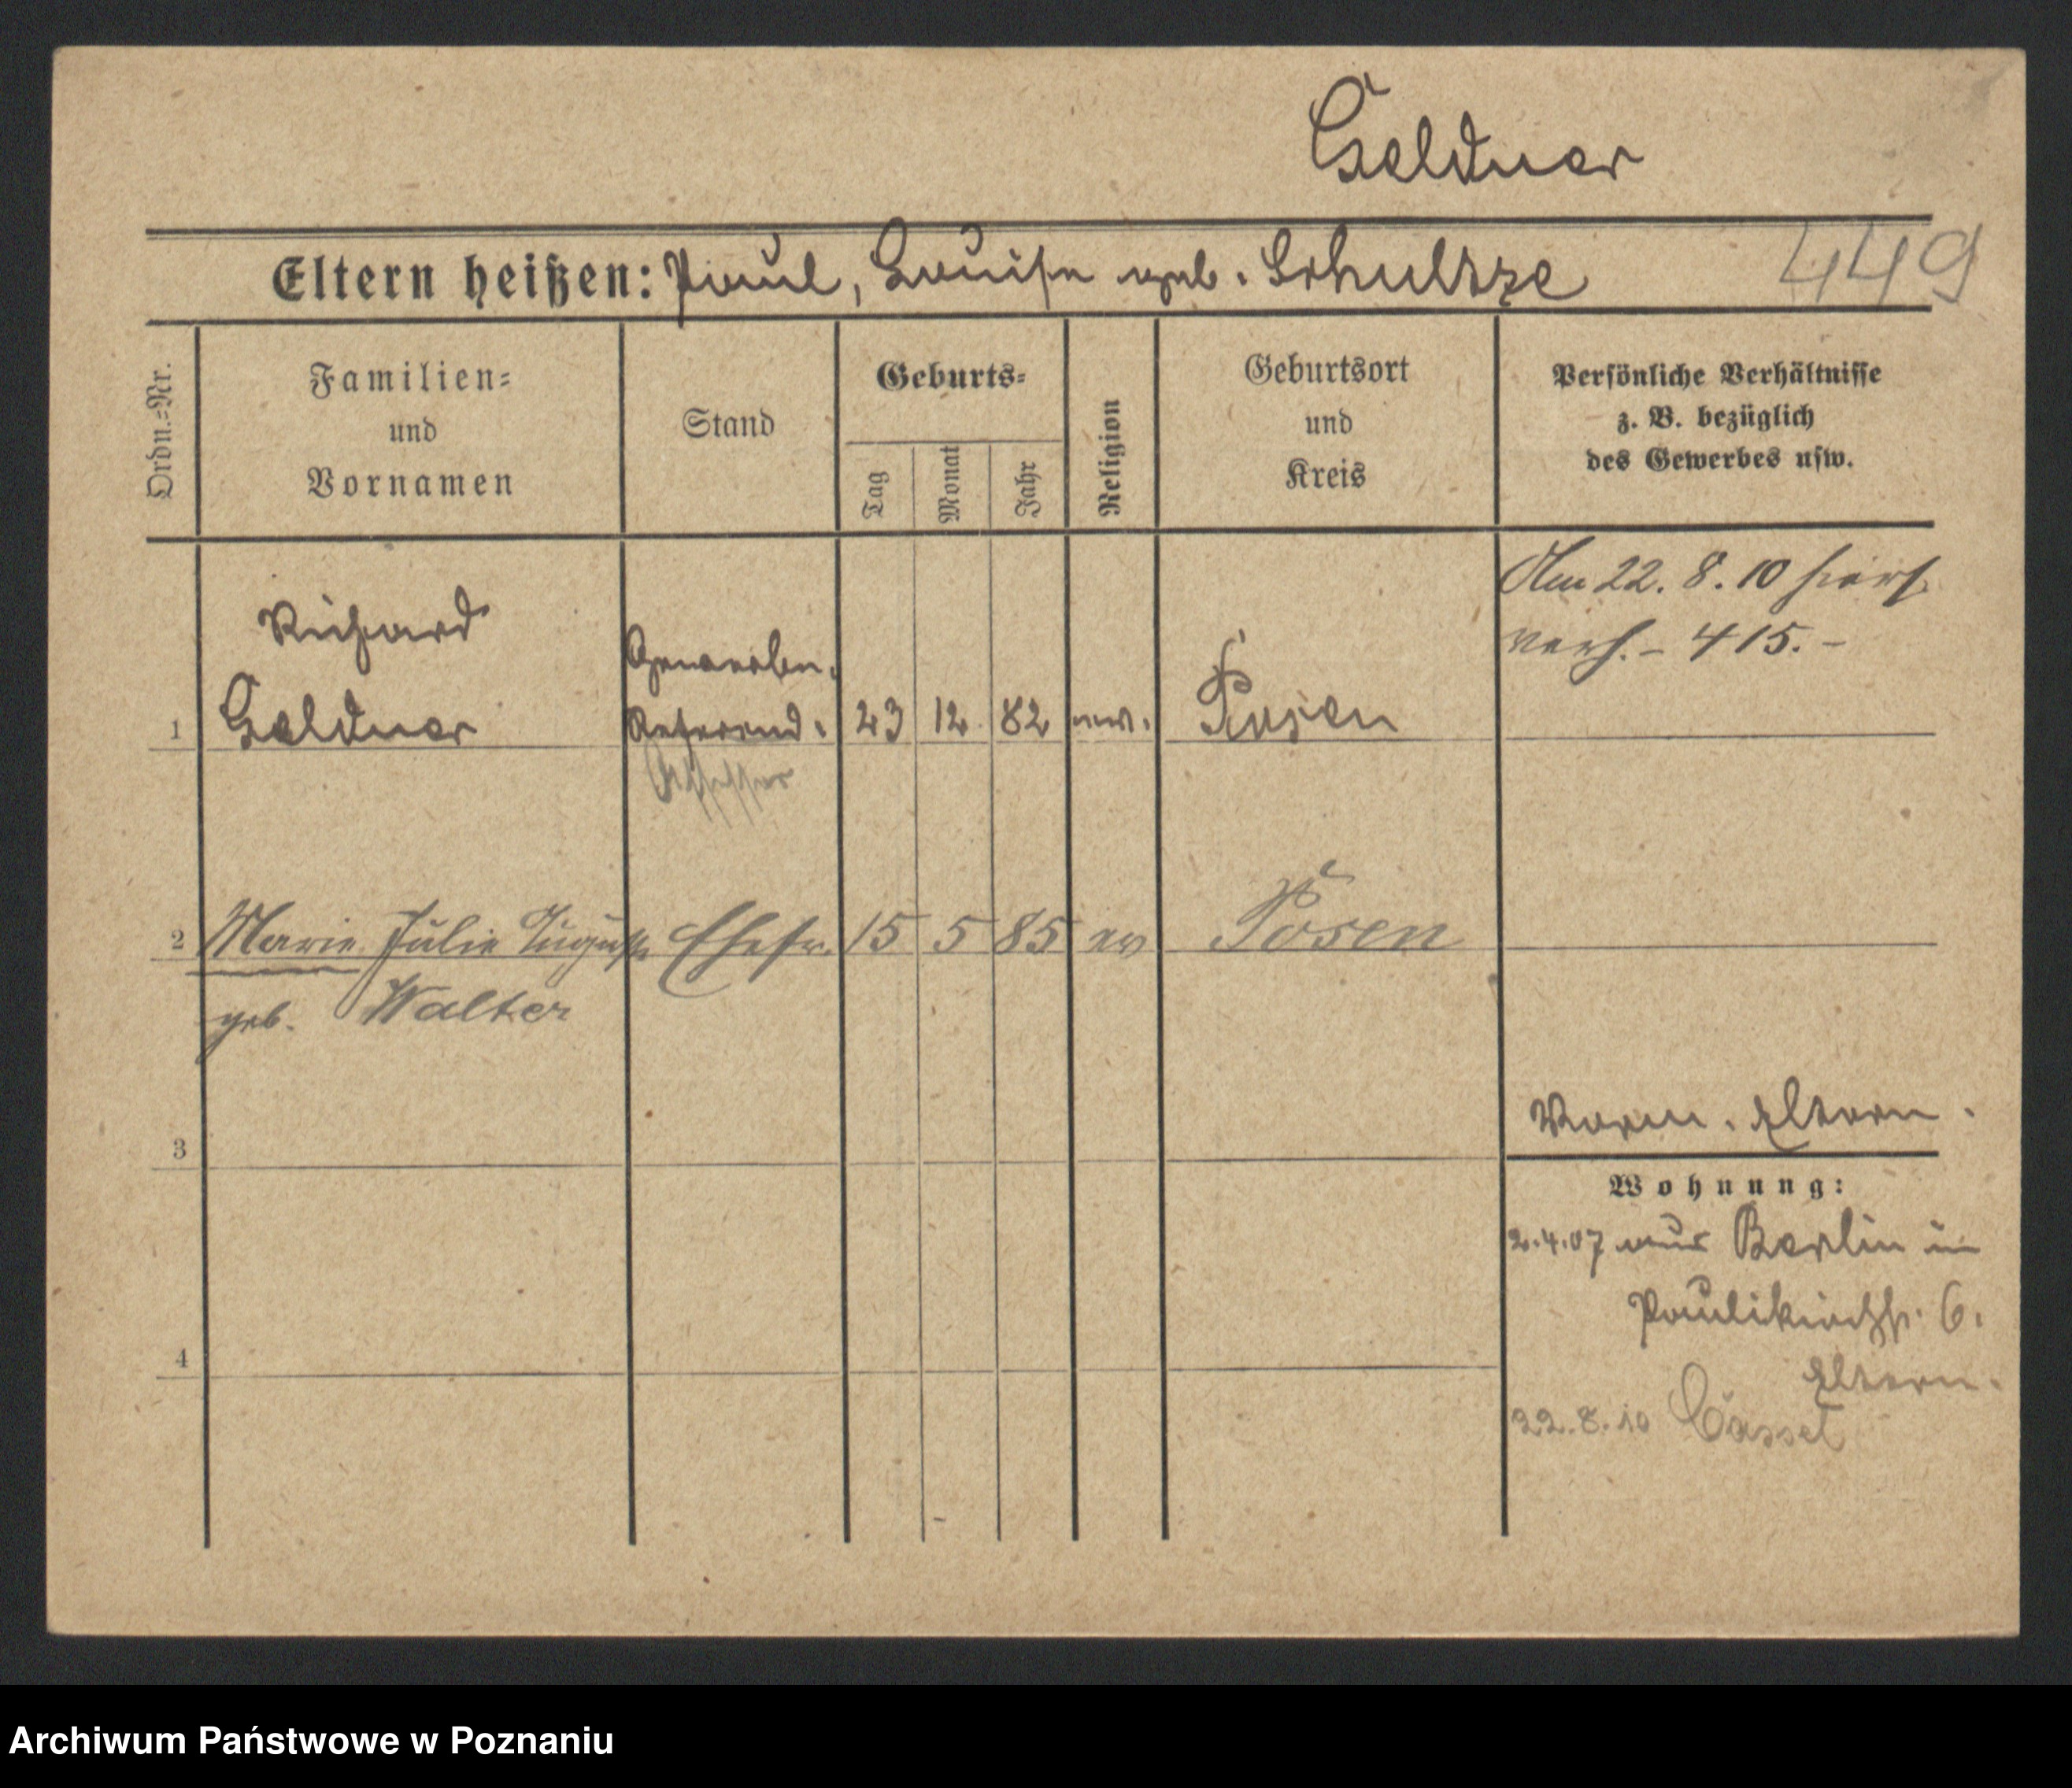 Geldner
Eltern heißen: Paul, Louise geb. Schultze 449
Ordn.-Nr.
Familien-
und
Vornamen
Stand
Geburts-
Tag
Monat
Jahr
Religion
Geburtsort
und
Kreis
Persönliche Verhältnisse
z. B. bezüglich
des Gewerbes usw.
Am 22. 8. 10 hiers.
verh. - 415. -
Richard
Geldner
Gewerbe-
Referend.
Assessor
1
23 12 82 ev. Posen
2 Marie Julie Auguste Ehefr. 15 5 85 ev Posen
geb. Walter
3
Vorm. Eltern.
Wohnung:
2.4.07 aus Berlin in
Paulikirchstr. 6.
4
Eltern.
22.8.10 Cassel
Archiwum Państwowe w Poznaniu